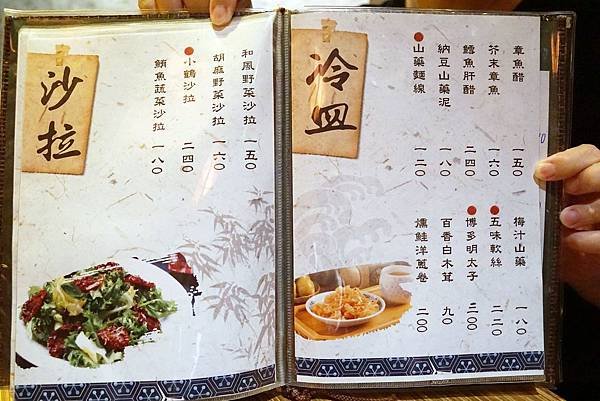 冷皿
章魚醋 一五〇
芥末章魚 一六〇
鱈魚肝醋 二四〇
納豆山藥泥 一八〇
山藥麵線 一二〇
梅汁山藥 一八〇
五味軟絲 二二〇
博多明太子 二〇〇
百香白木茸 九〇
燻鮭洋蔥卷 二〇〇
沙拉
和風野菜沙拉 一五〇
胡麻野菜沙拉 一六〇
小鶴沙拉 二四〇
鮪魚蔬菜沙拉 一八〇